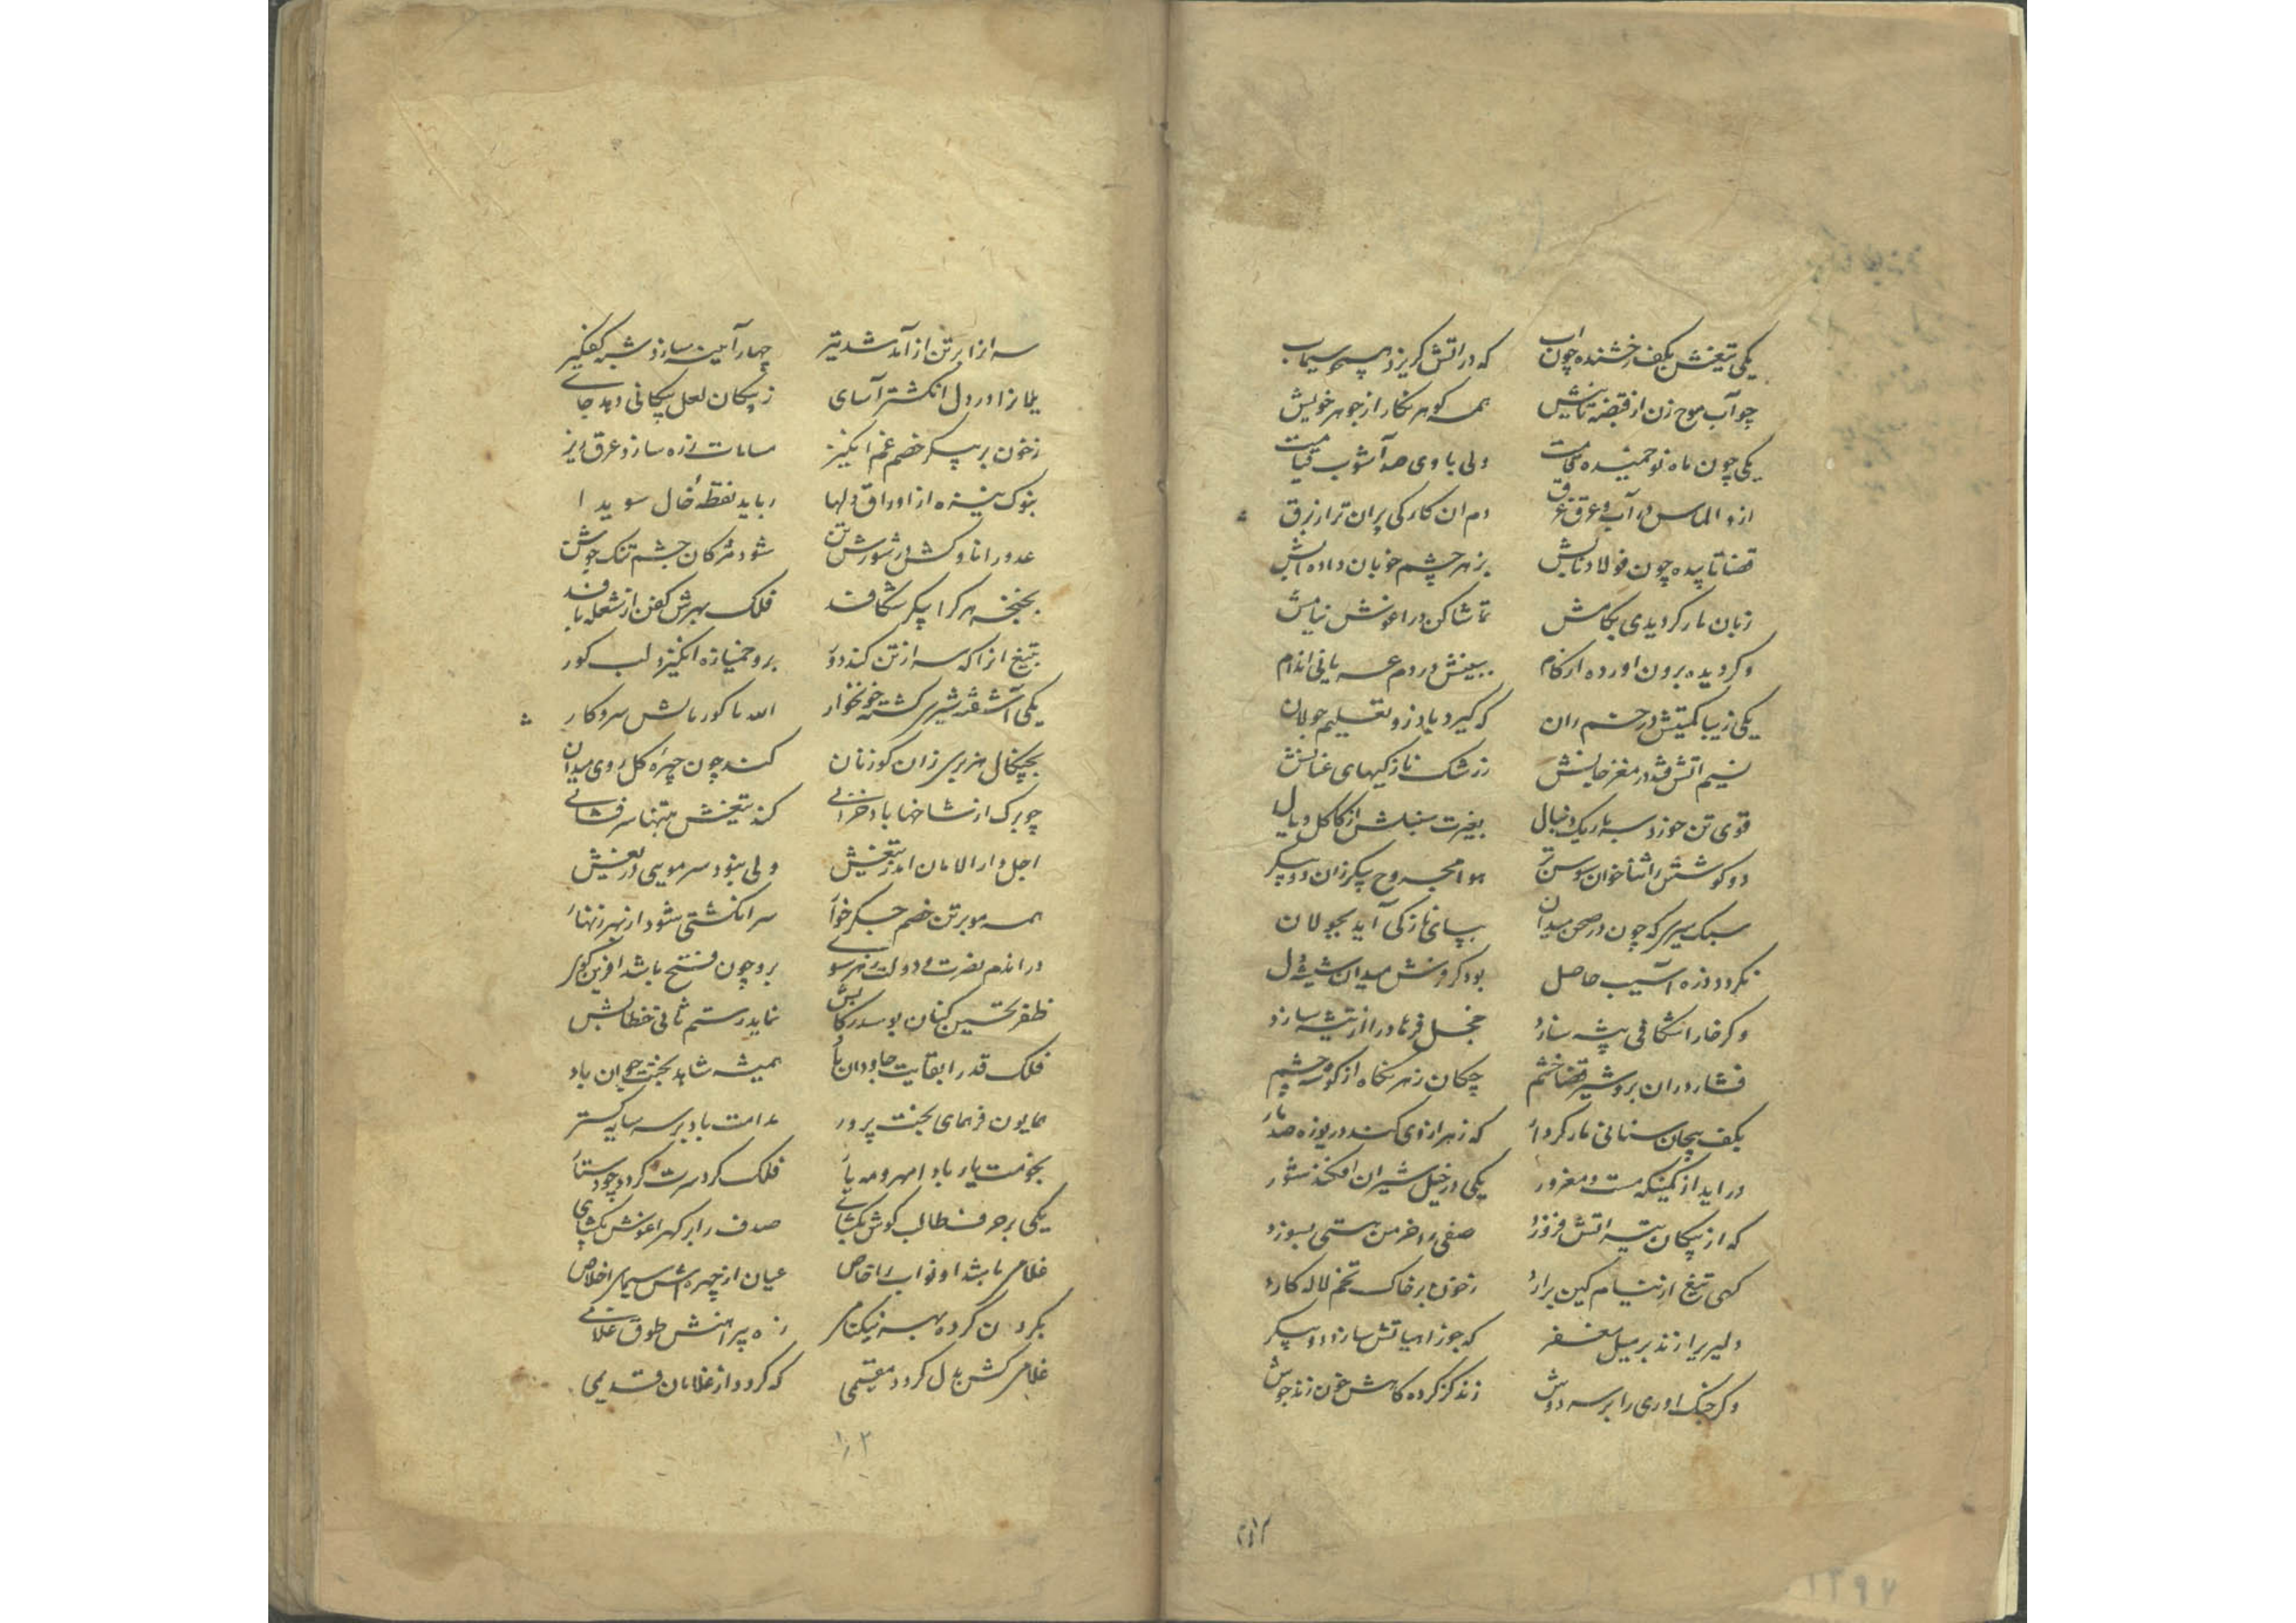 یکی تیغش بکف رخشنده چون آب که در اتش کریزد همچو سیماب
چو آب موج زن از قبضه تابش همه کوهر نکار از جوهر خویش
یکی چون ماه نو خمیده قامت ولی با وی صد آشوب قیامت
ازو الماس در آب و عرق غرق دم ان کارکی بران تر از برق
قضا تابیده چون فولاد نابش بزهر چشم خوبان داده آبش
زبان مار کر دیدی بکامش تماشا کن در اغوش نیامش
وکر دیده برون اورده از کام ببینش در دم عریانی اندام
یکی زیبا کمیتش در خم ران که کیرد باد زو تعلیم جولان
نسیم اتش فتد در مغز جانش ز رشک نازکیهای عنانش
قوی تن جوزد سم باریک دنبال بغیرت سنبلش از کاکل و یال
دو کوشش را ثناخوان سوسن تر هوا مجروح پیکر زان دو پیکر
سبک سیری که چون در صحن میدان بپای نازکی آید بجولان
نکردد ذره آسیب حاصل بود کر فرش میدان شیشه دل
وکر خارا شکافی پیشه سازد خجل فرهاد را از تیشه سازد
فشارد ران برو شیر قضا خشم چکان زهر نکاه از کوشه چشم
بکف پیچان سنانی مار کردار که زهر از وی کند دریوزه صد مار
در اید از کمینکه مست و مغرور یکی در خیل شیران افکند شور
که از پیکان تیر اتش فروزد صفی را خرمن هستی بسوزد
کهی تیغ از نیام کین برارد ز خون بر خاک تخم لاله کارد
دلیریرا زند بر میل مغفر که جوزا هیاتش سازد دو پیکر
وکر جنک اوری را بر سر دوش زند کز کرده کاهش خون زند جوش
سر انرا بر تن از آمد شد تیر چهار آینه سازد شبه کفکیر
یلانرا در دل انکشتر آسای ز پیکان لعل پیکانی دهد جای
ز خون بر پیکر خصم غم انکیز مسامات زره سازد عرق ریز
بنوک نیزه از اوراق دلها رباید نقطه خال سویدا
عدو را ناوکش در شورش تن شود مژکان چشم تنک جوشن
بخنجر هر کرا پیکر شکافد فلک بهرش کفن از شعله بافد
بتیغ انرا که سر از تن کند دور برو خمیازه انکیزد لب کور
یکی آشفته شیر کشته خونخوار الله با کور بالش سر و کار
بچنکال هزبری زان کوزنان کند چون چهره کل روی میدان
چو برک از شاخها باد خزانی کند تیغش بتنها سرفشانی
اجل دار الامان امد ز تیغش ولی نبود سر مویی دریغش
همه مو بر تن خصم جکر خوار سر انکشتی شود از بهر زنهار
دراندم نصرت و دولت ز هر سوی برو چون فتح باشد افرین کوی
ظفر تحسین کنان بوسد رکابش نماید رستم ثانی خطابش
فلک قدرا بقایت جاودان باد همیشه شاهد بختت جوان باد
همایون فر همای بخت پرور مدامت باد بر سر سایه کستر
بخدمت یار باد امهر و مه یار فلک کرد سرت کردد چو دستار
یکی بر حرف طالب کوش بکشای صدف را بر کهر اغوش بکشای
غلامی باشد او نواب را خاص عیان از چهره اش سیمای اخلاص
بکردن کرده بهر نیکنامی زه پیراهنش طوق غلامی
غلامی کش بدل کردد مقیمی که کردد از غلامان قدیمی